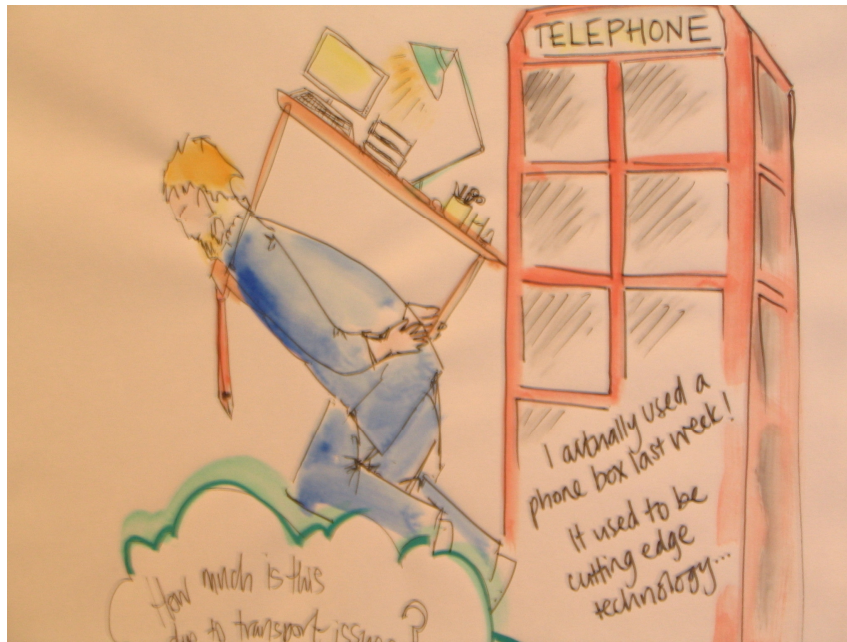 TELEPHONE
I actually used a
phone box last week!
It used to be
cutting edge
technology...
How much is this
due to transport issues?